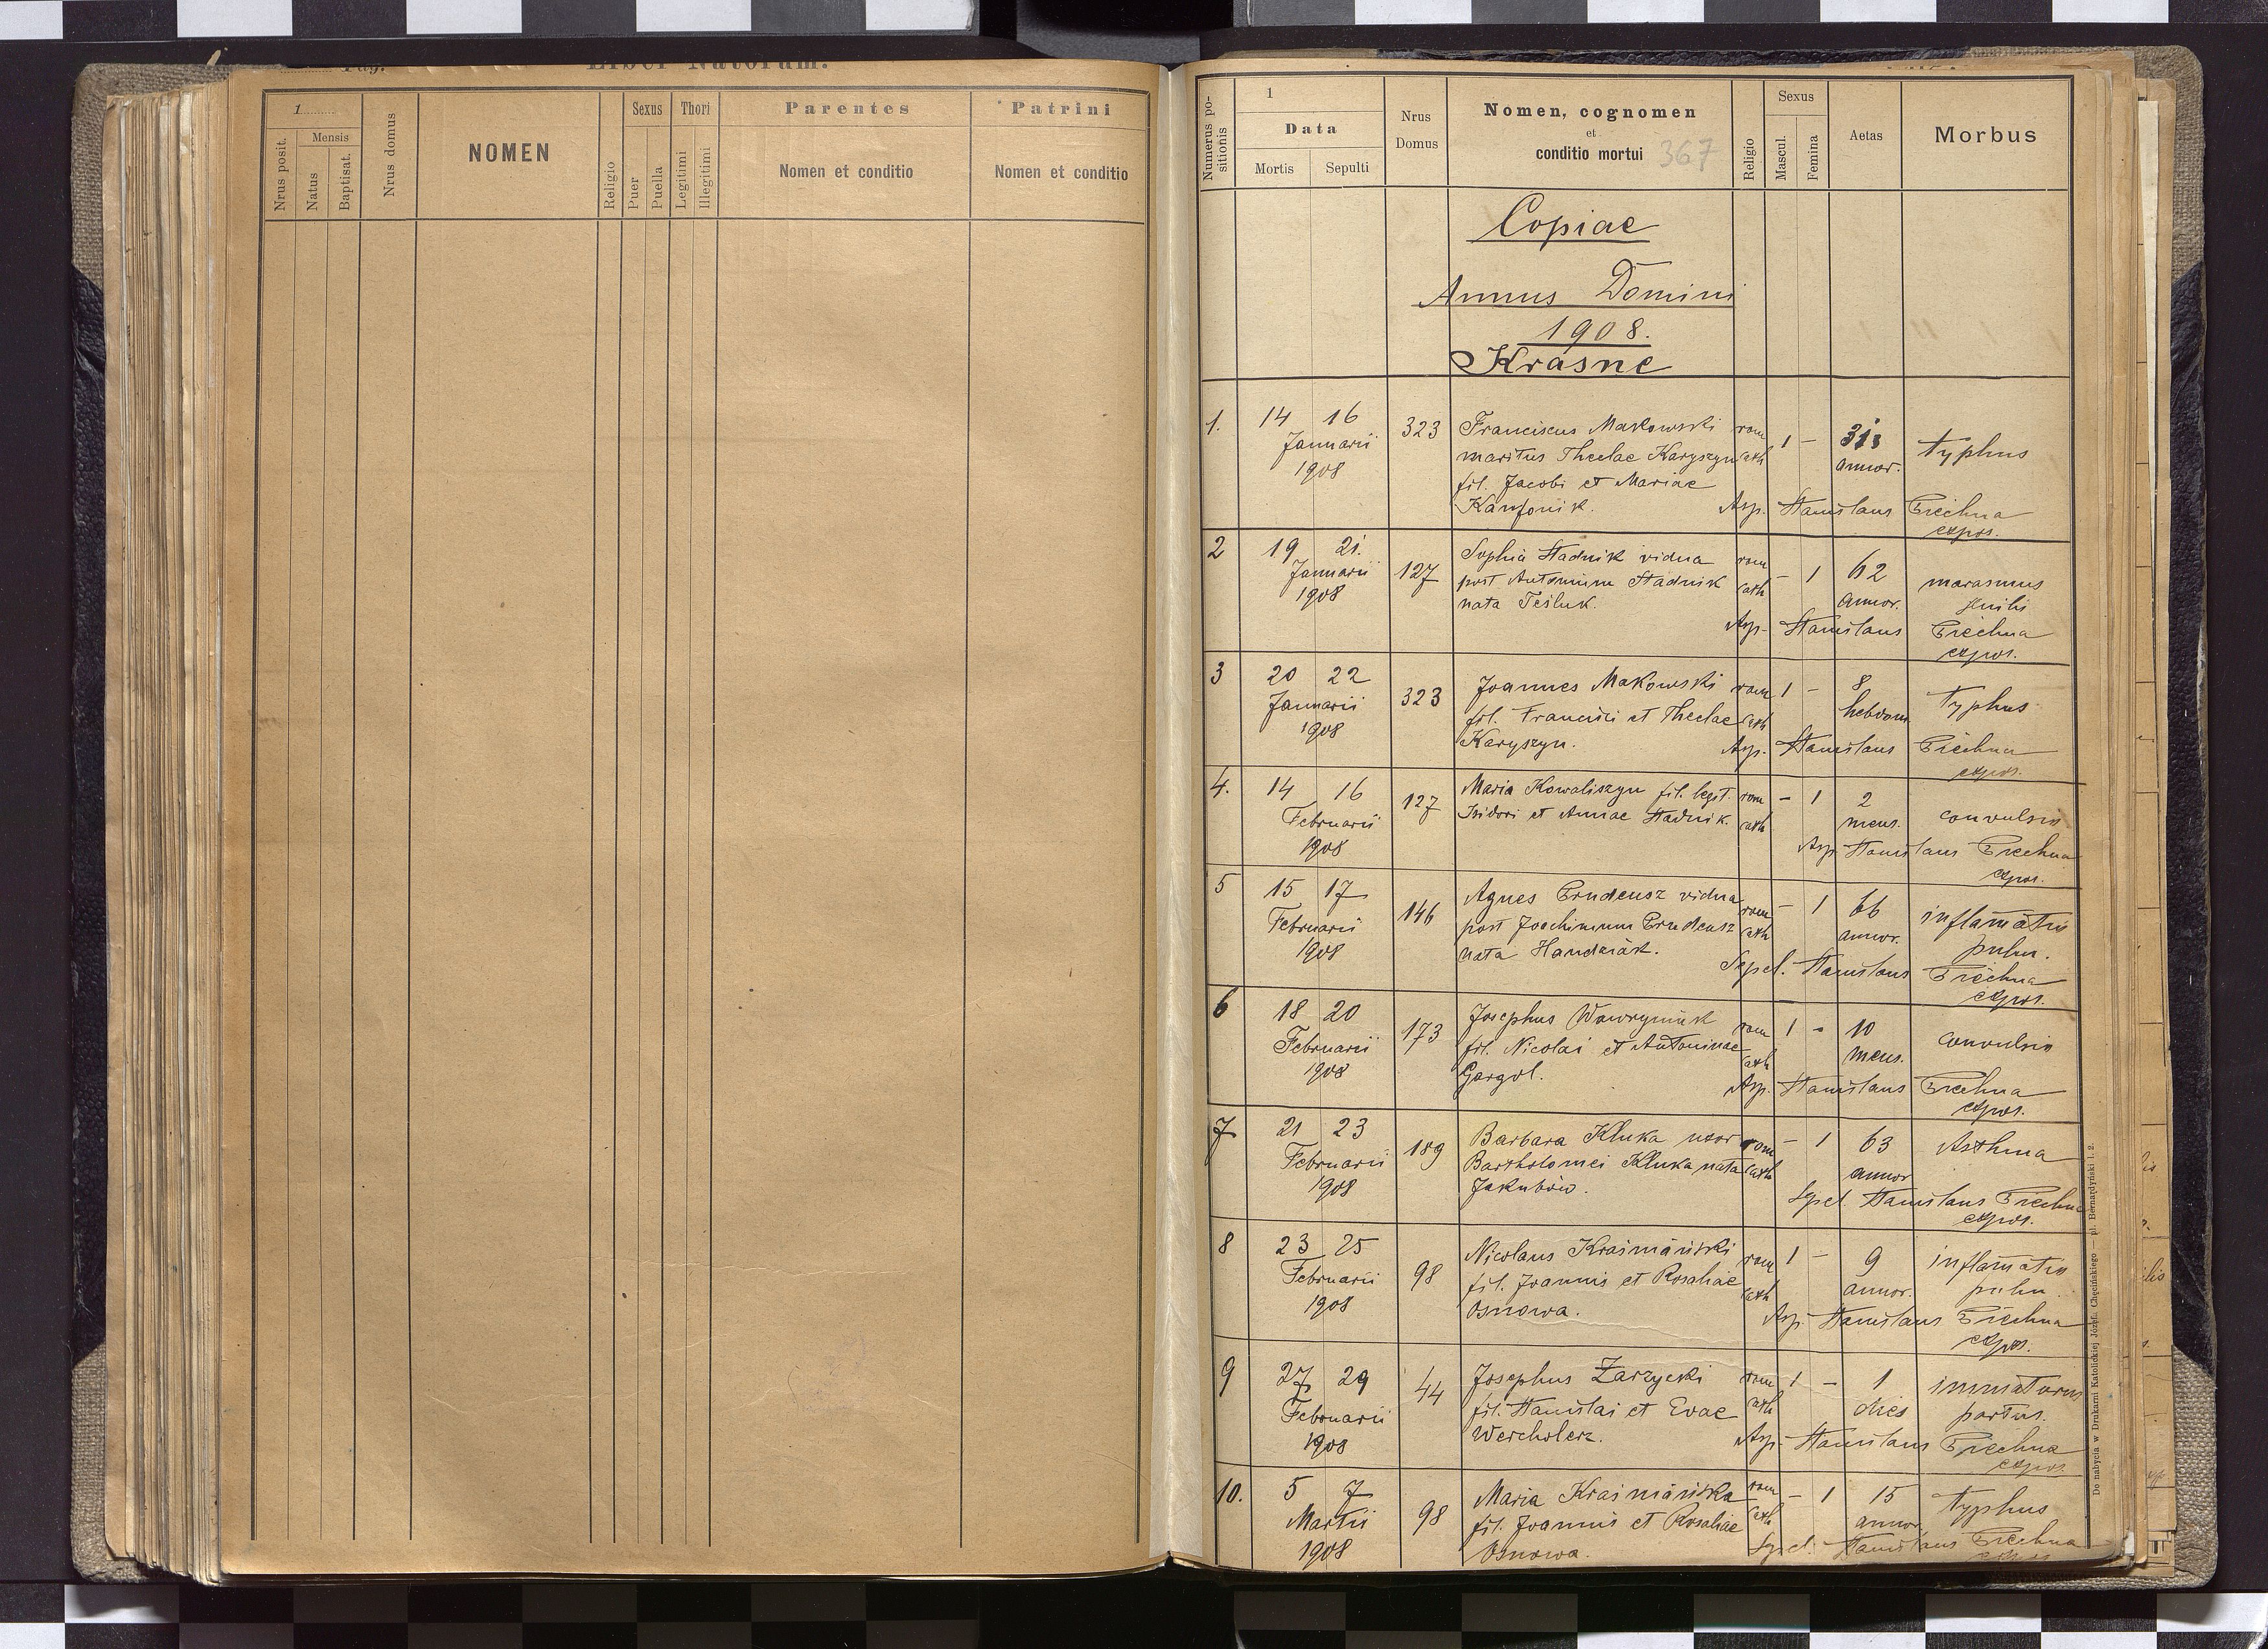 Pag.
Liber Natorum.
1
Nrus posit.
Mensis
Natus
Baptisat.
Nrus domus
NOMEN
Religio
Sexus
Puer
Puella
Thori
Legitimi
Illegitimi
Parentes
Nomen et conditio
Patrini
Nomen et conditio
Numerus po-
sitionis
1
Data
Mortis Sepulti
Nrus
Domus
Nomen, cognomen
et
conditio mortui 367
Religio
Sexus
Mascul.
Femina
Aetas
Morbus
Copiae
Annus Domini
1908.
Krasne
1. 14 16 323 Franciscus Makowski rom 1 – typhus
Januarii maritus Theclae Karyszyn cath annor.
1908 fil. Jacobi et Mariae
Kanfonik. Asp. Stanislaus Piechna
expos.
2 19 21. 127 Sophia Stadnik vidua rom – 1 62 marasmus
Januarii post Antonium Stadnik cath annor. senilis
1908 nata Teśluk.
Asp. Stanislaus Piechna
expos.
3 20 22 323 Joannes Makowski rom 1 – 8 typhus
Januarii fil. Francisci et Theclae cath hebdom.
1908 Karyszyn. Asp. Stanislaus Piechna
expos.
4. 14 16 127 Maria Kowaliszyn fil. legit. rom – 1 2 convulsio
Februarii Isidori et Annae Stadnik. cath mens.
1908 Asp. Stanislaus Piechna
expos.
5 15 17 146 Agnes Prudeusz vidua rom – 1 66 inflamatio
Februarii post Joachimum Prudeusz cath annor. pulm.
1908 nata Handziak. Sepel. Stanislaus Piechna
expos.
6 18 20 173 Josephus Wawryniuk rom 1 – 10 convulsio
Februarii fil. Nicolai et Antoninae cath mens.
1908 Gargol. Asp. Stanislaus Piechna
expos.
7 21 23 189 Barbara Kluka uxor rom – 1 63 Asthma
Februarii Bartholomei Kluka nata cath annor
1908 Jakubów. Sepel. Stanislaus Piechna
expos.
8 23 25 98 Nicolaus Kraśniański rom 1 – 9 inflamatio
Februarii fil. Joannis et Rosaliae cath annor. pulm.
1908 Osnowa. Asp. Stanislaus Piechna
expos.
9 27 29 44 Josephus Zarzycki rom 1 – 1 immaturus
Februarii fil. Stanislai et Evae cath dies partus.
1908 Wercholerz. Asp. Stanislaus Piechna
expos.
10. 5 7 98 Maria Kraśniańska rom – 1 15 typhus
Martii fil. Joannis et Rosaliae cath annor.
1908 Osnowa. Sepel. Stanislaus Piechna
expos.
Do nabycia w Drukarni Katolickiej Józefa Chęcińskiego — pl. Bernardyński l. 2.